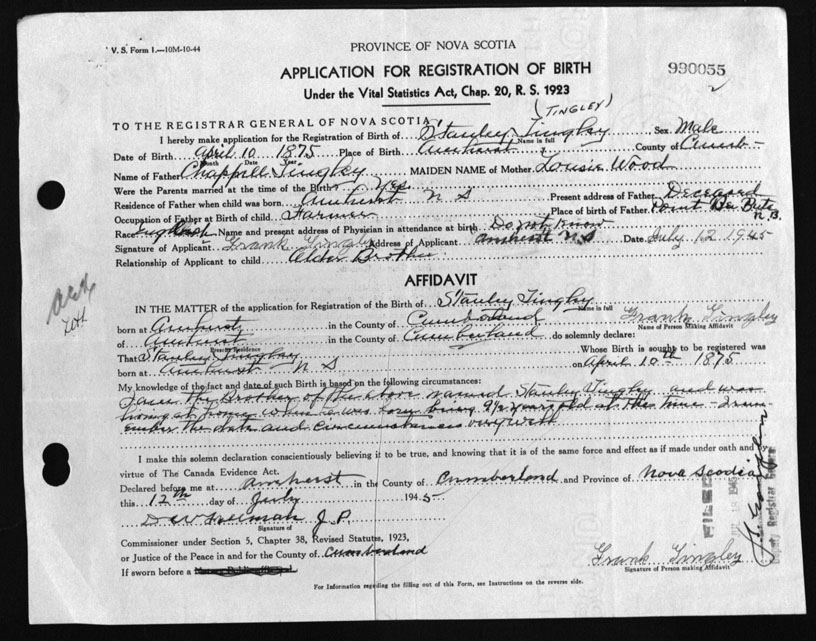 V. S. Form 1.—10M-10-44
PROVINCE OF NOVA SCOTIA
990055
APPLICATION FOR REGISTRATION OF BIRTH
Under the Vital Statistics Act, Chap. 20, R. S. 1923
(TINGLEY)
TO THE REGISTRAR GENERAL OF NOVA SCOTIA
I hereby make application for the Registration of Birth of Stanley Tingley Sex Male
Name in full
Date of Birth April 10 1875 Place of Birth Amherst County of Cumb-
Month Date Year
Name of Father Chappell Tingley MAIDEN NAME of Mother Louise Wood
Were the Parents married at the time of the Birth? Yes
Residence of Father when child was born Amherst N S Present address of Father Deceased
Occupation of Father at Birth of child Farmer Place of birth of Father Point De Bute N.B.
Race English Name and present address of Physician in attendance at birth Do not know
Signature of Applicant Frank Tingley Address of Applicant Amherst N.S Date July 12 1945
Relationship of Applicant to child Older Brother
AFFIDAVIT
IN THE MATTER of the application for Registration of the Birth of Stanley Tingley
Name in full
born at Amherst in the County of Cumberland Frank Tingley
Name of Person Making Affidavit
of Amherst in the County of Cumberland do solemnly declare:
Residence
That Stanley Tingley Whose Birth is sought to be registered was
born at Amherst N S on April 10th 1875
My knowledge of the fact and date of such Birth is based on the following circumstances:
I am the Brother of the above named Stanley Tingley and was
living at home when he was born being 9½ years old at the time - I rem-
ember the date and circumstances very well
I make this solemn declaration conscientiously believing it to be true, and knowing that it is of the same force and effect as if made under oath and by
virtue of The Canada Evidence Act.
Declared before me at Amherst in the County of Cumberland and Province of Nova Scotia
this 12th day of July 1945
J P.
Signature of
Commissioner under Section 5, Chapter 38, Revised Statutes, 1923,
or Justice of the Peace in and for the County of Cumberland
Frank Tingley
Signature of Person making Affidavit
If sworn before a
For Information regarding the filling out of this Form, see Instructions on the reverse side.
FILED
Deputy Registrar General